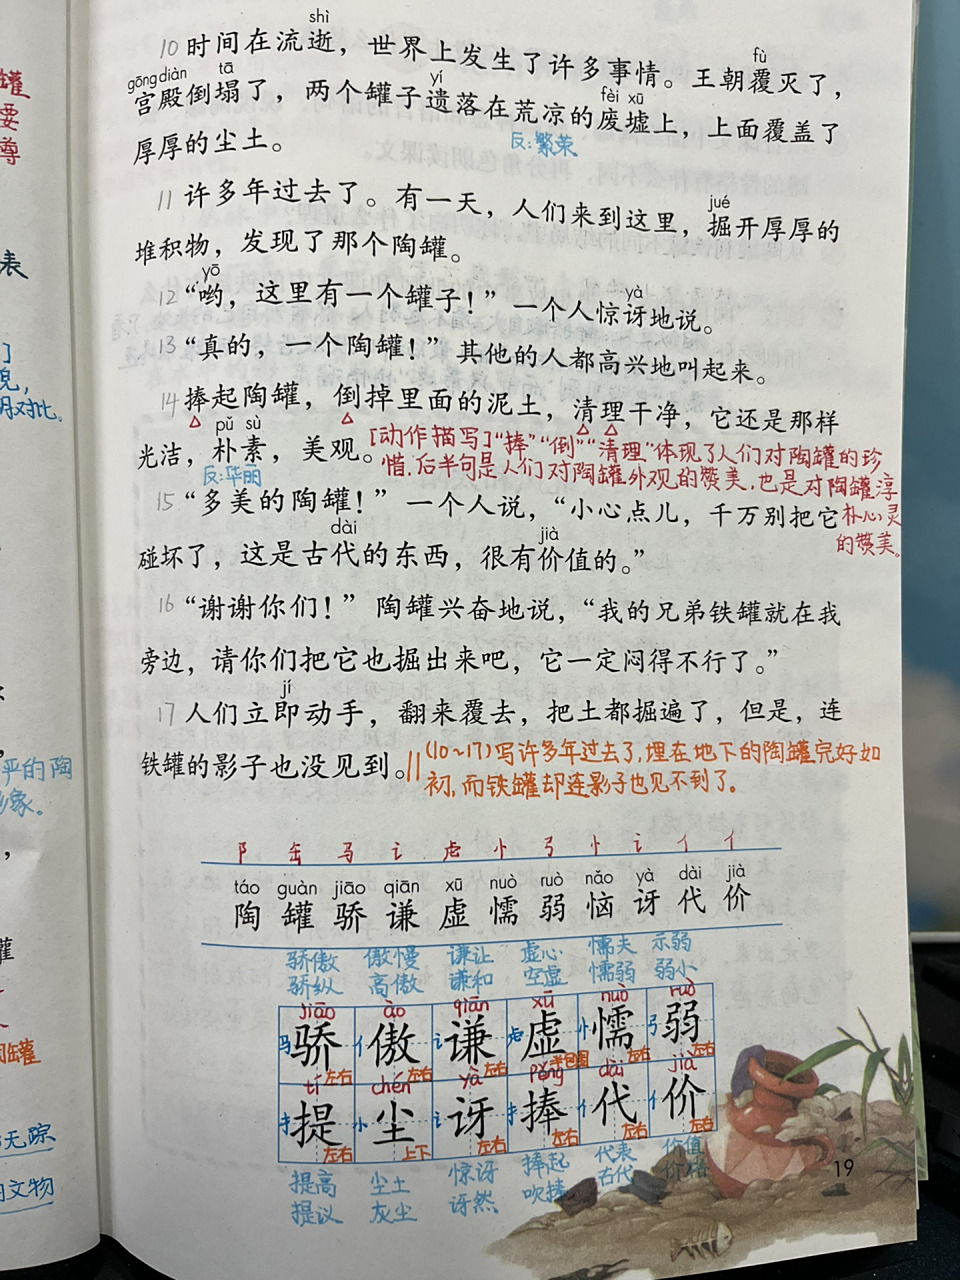 shì
10 时间在流逝，世界上发生了许多事情。王朝覆灭了，
fù
gōng diàn tā yí fèi xū
宫殿倒塌了，两个罐子遗落在荒凉的废墟上，上面覆盖了
反：繁荣
厚厚的尘土。
11 许多年过去了。有一天，人们来到这里，掘开厚厚的
jué
堆积物，发现了那个陶罐。
yō yà
12 “哟，这里有一个罐子！”一个人惊讶地说。
13 “真的，一个陶罐！”其他的人都高兴地叫起来。
14 捧起陶罐，倒掉里面的泥土，清理干净，它还是那样
pǔ sù
光洁，朴素，美观。
反：华丽
[动作描写]“捧”“倒”“清理”体现了人们对陶罐的珍
惜，后半句是人们对陶罐外观的赞美，也是对陶罐淳
朴心灵
的赞美。
15 “多美的陶罐！”一个人说，“小心点儿，千万别把它
dài jià
碰坏了，这是古代的东西，很有价值的。”
16 “谢谢你们！”陶罐兴奋地说，“我的兄弟铁罐就在我
旁边，请你们把它也掘出来吧，它一定闷得不行了。”
jí
17 人们立即动手，翻来覆去，把土都掘遍了，但是，连
铁罐的影子也没见到。
(10~17)写许多年过去了，埋在地下的陶罐完好如
初，而铁罐却连影子也见不到了。
阝 缶 马 讠 虍 忄 弓 忄 讠 亻 亻
táo guàn jiāo qiān xū nuò ruò nǎo yà dài jià
陶 罐 骄 谦 虚 懦 弱 恼 讶 代 价
骄傲 傲慢 谦让 虚心 懦夫 示弱
骄纵 高傲 谦和 空虚 懦弱 弱小
jiāo ào qiān xū nuò ruò
马 亻 讠 虍 忄 弓
骄 傲 谦 虚 懦 弱
左右 左右 左右 半包围 左右 左右
tí chén yà pěng dài jià
扌 小 讠 扌 亻 亻
提 尘 讶 捧 代 价
左右 上下 左右 左右 左右 左右
提高 尘土 惊讶 捧起 代表 价值
提议 灰尘 讶然 吹捧 古代 价格
19
罐
要
尊
表
们
兑，
明对比。
平的陶
形象。
，
罐
陶罐
无踪
文物